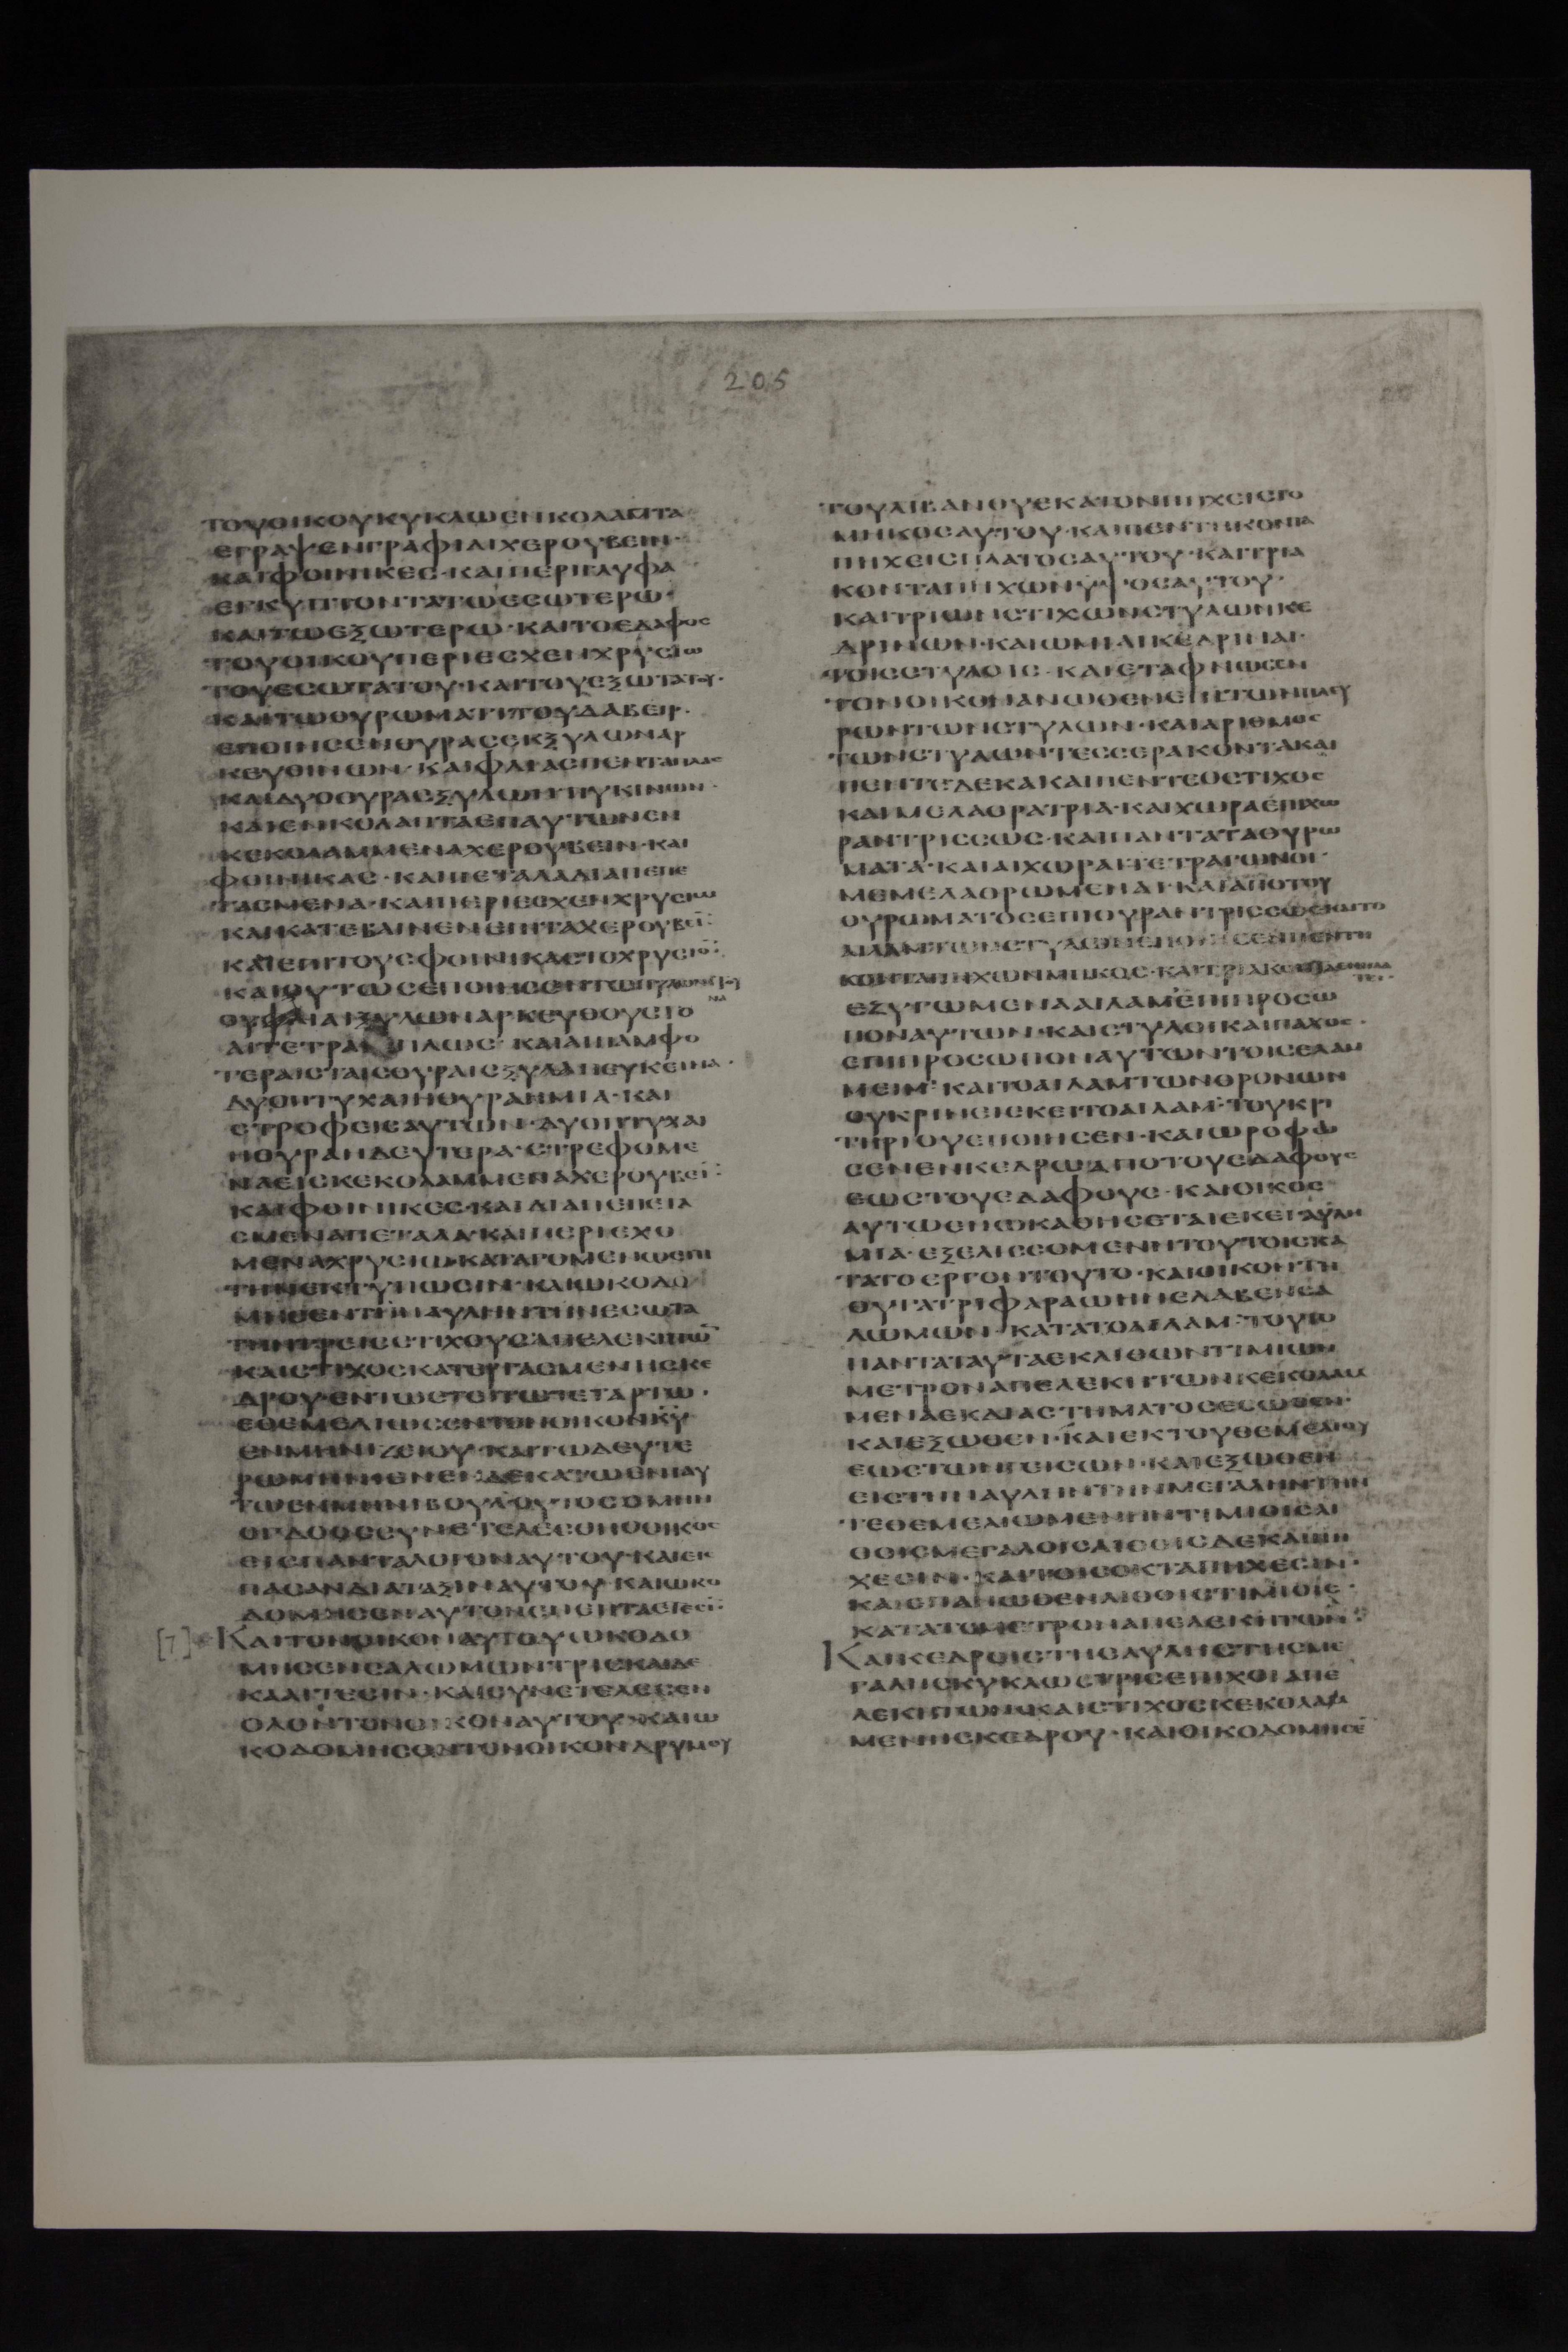 205
ΤΟΥΟΙΚΟΥΚΥΚΛΩΕΝΚΟΛΑΠΤΑ
ΕΓΡΑΨΕΝΓΡΑΦΙΔΙΧΕΡΟΥΒΕΙΝ·
ΚΑΙΦΟΙΝΙΚΕΣ·ΚΑΙΠΕΡΙΓΛΥΦΑ
ΕΓΚΥΠΤΟΝΤΑΤΩΕΣΩΤΕΡΩ·
ΚΑΙΤΩΕΞΩΤΕΡΩ·ΚΑΙΤΟΕΔΑΦΟΣ
ΤΟΥΟΙΚΟΥΠΕΡΙΕΣΧΕΝΧΡΥΣΙΩ
ΤΟΥΕΣΩΤΑΤΟΥ·ΚΑΙΤΟΥΕΞΩΤΑΤΟΥ·
ΚΑΙΤΩΘΥΡΩΜΑΤΙΤΟΥΔΑΒΕΙΡ·
ΕΠΟΙΗΣΕΝΘΥΡΑΣΕΚΞΥΛΩΝΑΡ
ΚΕΥΘΙΝΩΝ·ΚΑΙΦΛΙΑΣΠΕΝΤΑΠΛΑΣ
ΚΑΙΔΥΟΘΥΡΑΣΞΥΛΩΝΠΥΚΙΝΩΝ·
ΚΑΙΕΝΚΟΛΑΠΤΑΕΠΑΥΤΩΝΕΝ
ΚΕΚΟΛΑΜΜΕΝΑΧΕΡΟΥΒΕΙΝ·ΚΑΙ
ΦΟΙΝΙΚΑΣ·ΚΑΙΠΕΤΑΛΑΔΙΑΠΕΠΕ
ΤΑΣΜΕΝΑ·ΚΑΙΠΕΡΙΕΣΧΕΝΧΡΥΣΙΩ
ΚΑΙΚΑΤΕΒΑΙΝΕΝΕΠΙΤΑΧΕΡΟΥΒΕΙ̅·
ΚΑΙΕΠΙΤΟΥΣΦΟΙΝΙΚΑΣΤΟΧΡΥΣΙΟ̅·
ΚΑΙΟΥΤΩΣΕΠΟΙΗΣΕΝΤΩΠΥΛΩΝΙ
ΟΥΦΛΙΑΙΞΥΛΩΝΑΡΚΕΥΘΟΥΣΤΟ
ΑΙΤΕΤΡΑΠΛΩΣ·ΚΑΙΑΝΑΜΦΟ
ΤΕΡΑΙΣΤΑΙΣΘΥΡΑΙΣΞΥΛΑΠΕΥΚΕΙΝΑ·
ΔΥΟΠΤΥΧΑΙΗΘΥΡΑΗΜΙΑ·ΚΑΙ
ΣΤΡΟΦΕΙΣΑΥΤΩΝ·ΔΥΟΠΤΥΧΑΙ
ΗΘΥΡΑΗΔΕΥΤΕΡΑ·ΣΤΡΕΦΟΜΕ
ΝΑΕΙΣΚΕΚΟΛΑΜΜΕΝΑΧΕΡΟΥΒΕΙ̅·
ΚΑΙΦΟΙΝΙΚΕΣ·ΚΑΙΔΙΑΠΕΠΕΤΑ
ΣΜΕΝΑΠΕΤΑΛΑ·ΚΑΙΠΕΡΙΕΧΟ
ΜΕΝΑΧΡΥΣΙΩ·ΚΑΤΑΓΟΜΕΝΩΕΠΙ
ΤΗΝΕΚΤΥΠΩΣΙΝ·ΚΑΙΩΚΟΔΟ
ΜΗΣΕΝΤΗΝΑΥΛΗΝΤΗΝΕΣΩΤΑ
ΤΗΝΤΡΕΙΣΣΤΙΧΟΥΣΑΠΕΛΕΚΗΤΩ̅
ΚΑΙΣΤΙΧΟΣΚΑΤΕΡΓΑΣΜΕΝΗΣΚΕ
ΔΡΟΥ·ΕΝΤΩΕΤΕΙΤΩΤΕΤΑΡΤΩ·
ΕΘΕΜΕΛΙΩΣΕΝΤΟΝΟΙΚΟΝΚ̅Υ̅
ΕΝΜΗΝΙΖΕΙΟΥ·ΚΑΙΤΩΔΕΥΤΕ
ΡΩΜΗΝΙΕΝΕΝΔΕΚΑΤΩΕΝΙΑΥ
ΤΩΕΝΜΗΝΙΒΟΥΛΟΥΤΟΣΟΜΗΝ
ΟΓΔΟΟΣΣΥΝΕΤΕΛΕΣΘΗΟΟΙΚΟΣ
ΕΙΣΠΑΝΤΑΛΟΓΟΝΑΥΤΟΥ·ΚΑΙΕΙΣ
ΠΑΣΑΝΔΙΑΤΑΞΙΝΑΥΤΟΥ·ΚΑΙΩΚΟ
ΔΟΜΗΣΕΝΑΥΤΟΝΕΝΕΠΤΑΕΤΕΣΙ̅·
[7] ΚΑΙΤΟΝΟΙΚΟΝΑΥΤΟΥΩΚΟΔΟ
ΜΗΣΕΝΣΑΛΩΜΩΝΤΡΙΣΚΑΙΔΕ
ΚΑΑΙΤΕΣΙΝ·ΚΑΙΣΥΝΕΤΕΛΕΣΕΝ
ΟΛΟΝΤΟΝΟΙΚΟΝΑΥΤΟΥ·ΚΑΙΩ
ΚΟΔΟΜΗΣΕΝΤΟΝΟΙΚΟΝΔΡΥΜΟΥ
ΤΟΥΛΙΒΑΝΟΥΕΚΑΤΟΝΠΗΧΕΙΣΤΟ
ΜΗΚΟΣΑΥΤΟΥ·ΚΑΙΠΕΝΤΗΚΟΝΤΑ
ΠΗΧΕΙΣΠΛΑΤΟΣΑΥΤΟΥ·ΚΑΙΤΡΙΑ
ΚΟΝΤΑΠΗΧΩΝΥΨΟΣΑΥΤΟΥ·
ΚΑΙΤΡΙΩΝΣΤΙΧΩΝΣΤΥΛΩΝΚΕ
ΔΡΙΝΩΝ·ΚΑΙΩΜΙΔΙΚΕΔΡΙΝΑΙ·
ΤΟΙΣΣΤΥΛΟΙΣ·ΚΑΙΕΤΑΦΝΩΣΕΝ
ΤΟΝΟΙΚΟΝΑΝΩΘΕΝΕΠΙΤΩΝΠΛΕΥ
ΡΩΝΤΩΝΣΤΥΛΩΝ·ΚΑΙΑΡΙΘΜΟΣ
ΤΩΝΣΤΥΛΩΝΤΕΣΣΕΡΑΚΟΝΤΑΚΑΙ
ΠΕΝΤΕΔΕΚΑΚΑΙΠΕΝΤΕΟΣΤΙΧΟΣ
ΚΑΙΜΕΛΑΘΡΑΤΡΙΑ·ΚΑΙΧΩΡΑΕΠΙΧΩ
ΡΑΝΤΡΙΣΣΩΣ·ΚΑΙΠΑΝΤΑΤΑΘΥΡΩ
ΜΑΤΑ·ΚΑΙΑΙΧΩΡΑΙΤΕΤΡΑΓΩΝΟΙ·
ΜΕΜΕΛΑΘΡΩΜΕΝΑΙ·ΚΑΙΑΠΟΤΟΥ
ΘΥΡΩΜΑΤΟΣΕΠΙΘΥΡΑΝΤΡΙΣΣΩΣ·ΚΑΙΤΟ
ΑΙΛΑΜΤΩΝΣΤΥΛΩΝΕΠΟΙΗΣΕΝΠΕΝΤΗ
ΚΟΝΤΑΠΗΧΩΝΜΗΚΟΣ·ΚΑΙΤΡΙΑΚΟΝΤΑΕΝΠΛΑΤΕΙ·
ΕΖΥΓΩΜΕΝΑΑΙΛΑΜΕΠΙΠΡΟΣΩ
ΠΟΝΑΥΤΩΝ·ΚΑΙΣΤΥΛΟΙΚΑΙΠΑΧΟΣ·
ΕΠΙΠΡΟΣΩΠΟΝΑΥΤΩΝΤΟΙΣΕΛΑΜ
ΜΕΙΜ·ΚΑΙΤΟΑΙΛΑΜΤΩΝΘΡΟΝΩΝ
ΟΥΚΡΙΝΕΙΕΚΕΙΤΟΑΙΛΑΜ·ΤΟΥΚΡΙ
ΤΗΡΙΟΥΕΠΟΙΗΣΕΝ·ΚΑΙΩΡΟΦΩ
ΣΕΝΕΝΚΕΔΡΩΑΠΟΤΟΥΕΔΑΦΟΥΣ
ΕΩΣΤΟΥΕΔΑΦΟΥΣ·ΚΑΙΟΙΚΟΣ
ΑΥΤΩΕΝΩΚΑΘΗΣΕΤΑΙΕΚΕΙΑΥΛΗ
ΜΙΑ·ΕΞΕΛΙΣΣΟΜΕΝΗΤΟΥΤΟΙΣΚΑ
ΤΑΤΟΕΡΓΟΝΤΟΥΤΟ·ΚΑΙΟΙΚΟΝΤΗ
ΘΥΓΑΤΡΙΦΑΡΑΩΗΝΕΛΑΒΕΝΣΑ
ΛΩΜΩΝ·ΚΑΤΑΤΟΑΙΛΑΜ·ΤΟΥΤΟ
ΠΑΝΤΑΤΑΥΤΑΕΚΛΙΘΩΝΤΙΜΙΩΝ
ΜΕΤΡΟΝΑΠΕΛΕΚΗΤΩΝΚΕΚΟΛΑΜ
ΜΕΝΑΕΚΔΙΑΣΤΗΜΑΤΟΣΕΣΩΘΕΝ·
ΚΑΙΕΞΩΘΕΝ·ΚΑΙΕΚΤΟΥΘΕΜΕΛΙΟΥ
ΕΩΣΤΩΝΓΕΙΣΩΝ·ΚΑΙΕΞΩΘΕΝ
ΕΙΣΤΗΝΑΥΛΗΝΤΗΝΜΕΓΑΛΗΝΤΗΝ
ΤΕΘΕΜΕΛΙΩΜΕΝΗΝΤΙΜΙΟΙΣΛΙ
ΘΟΙΣΜΕΓΑΛΟΙΣΛΙΘΟΙΣΔΕΚΑΠΗ
ΧΕΣΙΝ·ΚΑΙΤΟΙΣΟΚΤΑΠΗΧΕΣΙΝ·
ΚΑΙΕΠΑΝΩΘΕΝΛΙΘΟΙΣΤΙΜΙΟΙΣ·
ΚΑΤΑΤΟΜΕΤΡΟΝΑΠΕΛΕΚΗΤΩΝ·
ΚΑΙΚΕΔΡΟΙΣΤΗΣΑΥΛΗΣΤΗΣΜΕ
ΓΑΛΗΣΚΥΚΛΩΣΤΡΙΣΕΠΙΧΟΙΑΠΕ
ΛΕΚΗΤΩΝ·ΚΑΙΣΤΙΧΟΣΚΕΚΟΛΑΜ
ΜΕΝΗΣΚΕΔΡΟΥ·ΚΑΙΟΙΚΟΔΟΜΗΣΕ̅